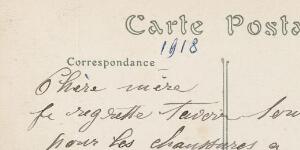 Carte Posta
1918
Correspondance
Chère mère
je regrette t'avoir
pour les chaussures a